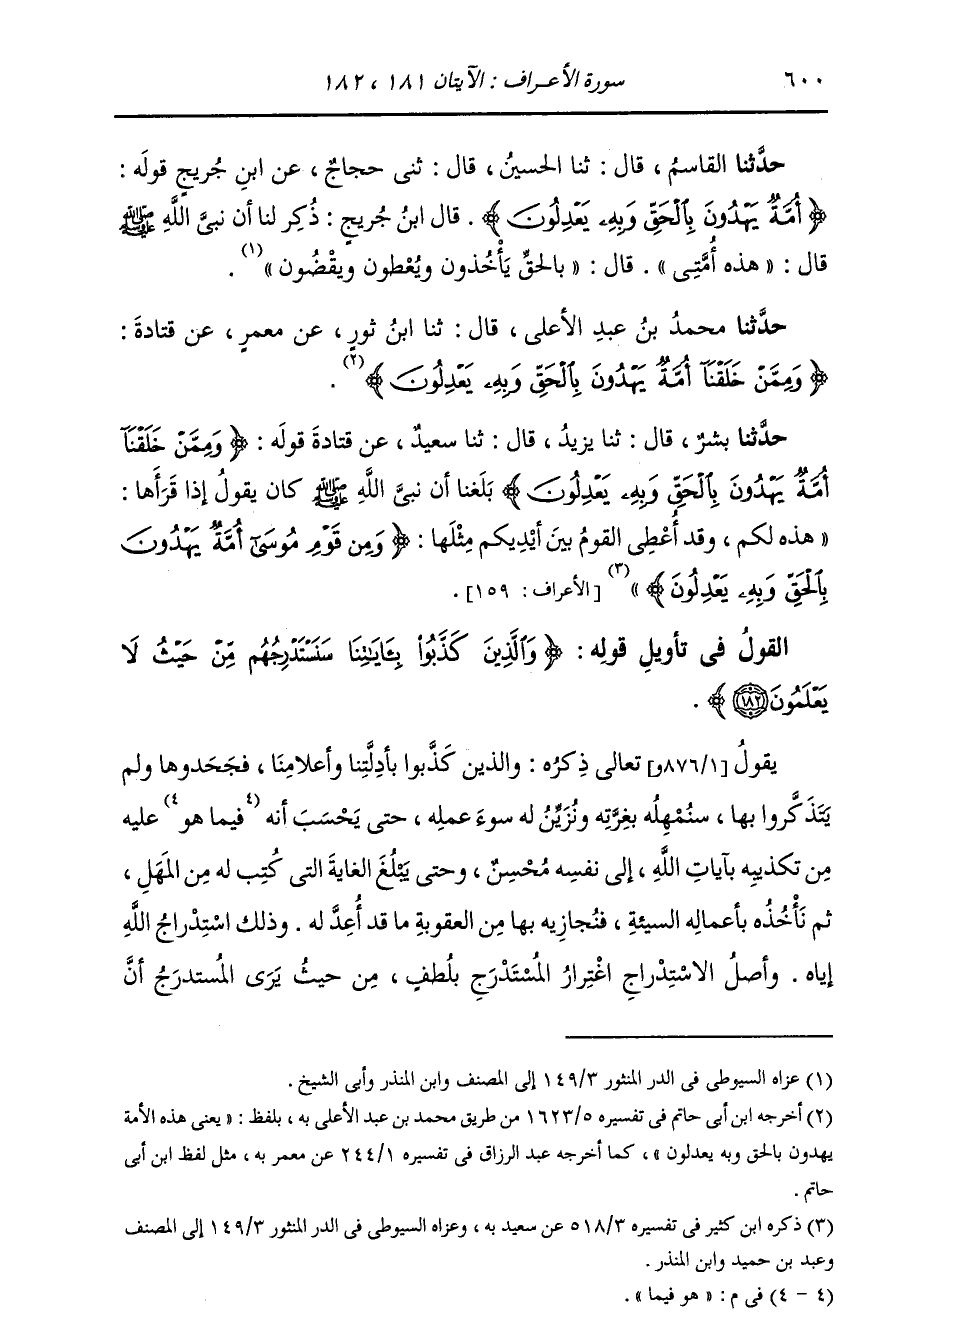 ٦٠٠ سورة الأعراف : الآيتان ١٨١ ، ١٨٢
حدَّثنا القاسمُ ، قال : ثنا الحسينُ ، قال : ثنى حجاجٌ ، عن ابنِ جُريجٍ قولَه :
﴿ أُمَّةٌ يَهْدُونَ بِالْحَقِّ وَبِهِ يَعْدِلُونَ ﴾ . قال ابنُ جُريجٍ : ذُكِر لنا أن نبىَّ اللَّهِ ﷺ
قال : « هذه أُمَّتِى » . قال : « بالحقِّ يَأْخُذون ويُعْطون ويقْضُون »(١) .
حدَّثنا محمدُ بنُ عبدِ الأعلى ، قال : ثنا ابنُ ثورٍ ، عن معمرٍ ، عن قتادةَ :
﴿ وَمِمَّنْ خَلَقْنَآ أُمَّةٌ يَهْدُونَ بِالْحَقِّ وَبِهِ يَعْدِلُونَ ﴾(٢) .
حدَّثنا بشرٌ ، قال : ثنا يزيدُ ، قال : ثنا سعيدٌ ، عن قتادةَ قولَه : ﴿ وَمِمَّنْ خَلَقْنَآ
أُمَّةٌ يَهْدُونَ بِالْحَقِّ وَبِهِ يَعْدِلُونَ ﴾ بَلَغنا أن نبىَّ اللَّهِ ﷺ كان يقولُ إذا قَرَأها :
« هذه لكم ، وقد أُعْطِى القومُ بينَ أيْدِيكم مِثْلَها : ﴿ وَمِن قَوْمِ مُوسَىٰٓ أُمَّةٌ يَهْدُونَ
بِالْحَقِّ وَبِهِ يَعْدِلُونَ ﴾ »(٣) [الأعراف : ١٥٩] .
القولُ فى تأويلِ قولِه : ﴿ وَالَّذِينَ كَذَّبُوا بِـَٔايَـٰتِنَا سَنَسْتَدْرِجُهُم مِّنْ حَيْثُ لَا
يَعْلَمُونَ (١٨٢) ﴾ .
يقولُ [٨٧٦/١و] تعالى ذِكرُه : والذين كَذَّبوا بأدِلَّتِنا وأعلامِنَا ، فجَحَدوها ولم
يَتَذَكَّروا بها ، سنُمْهِلُه بغِرَّتِه ونُزَيِّنُ له سوءَ عملِه ، حتى يَحْسَبَ أنه (٤فيما هو٤) عليه
مِن تكذيبِه بآياتِ اللَّهِ ، إلى نفسِه مُحْسِنٌ ، وحتى يَبْلُغَ الغايةَ التى كُتِب له مِن المَهَلِ ،
ثم نَأْخُذُه بأعمالِه السيئةِ ، فنُجازِيه بها مِن العقوبةِ ما قد أُعِدَّ له . وذلك اسْتِدْراجُ اللَّهِ
إياه . وأصلُ الاسْتِدْراجِ اغْتِرارُ المُسْتَدْرَجِ بلُطفٍ ، مِن حيثُ يَرَى المُستدرَجُ أنَّ
(١) عزاه السيوطى فى الدر المنثور ١٤٩/٣ إلى المصنف وابن المنذر وأبى الشيخ .
(٢) أخرجه ابن أبى حاتم فى تفسيره ١٦٢٣/٥ من طريق محمد بن عبد الأعلى به ، بلفظ : « يعنى هذه الأمة
يهدون بالحق وبه يعدلون » ، كما أخرجه عبد الرزاق فى تفسيره ٢٤٤/١ عن معمر به ، مثل لفظ ابن أبى
حاتم .
(٣) ذكره ابن كثير فى تفسيره ٥١٨/٣ عن سعيد به ، وعزاه السيوطى فى الدر المنثور ١٤٩/٣ إلى المصنف
وعبد بن حميد وابن المنذر .
(٤ - ٤) فى م : « هو فيما » .